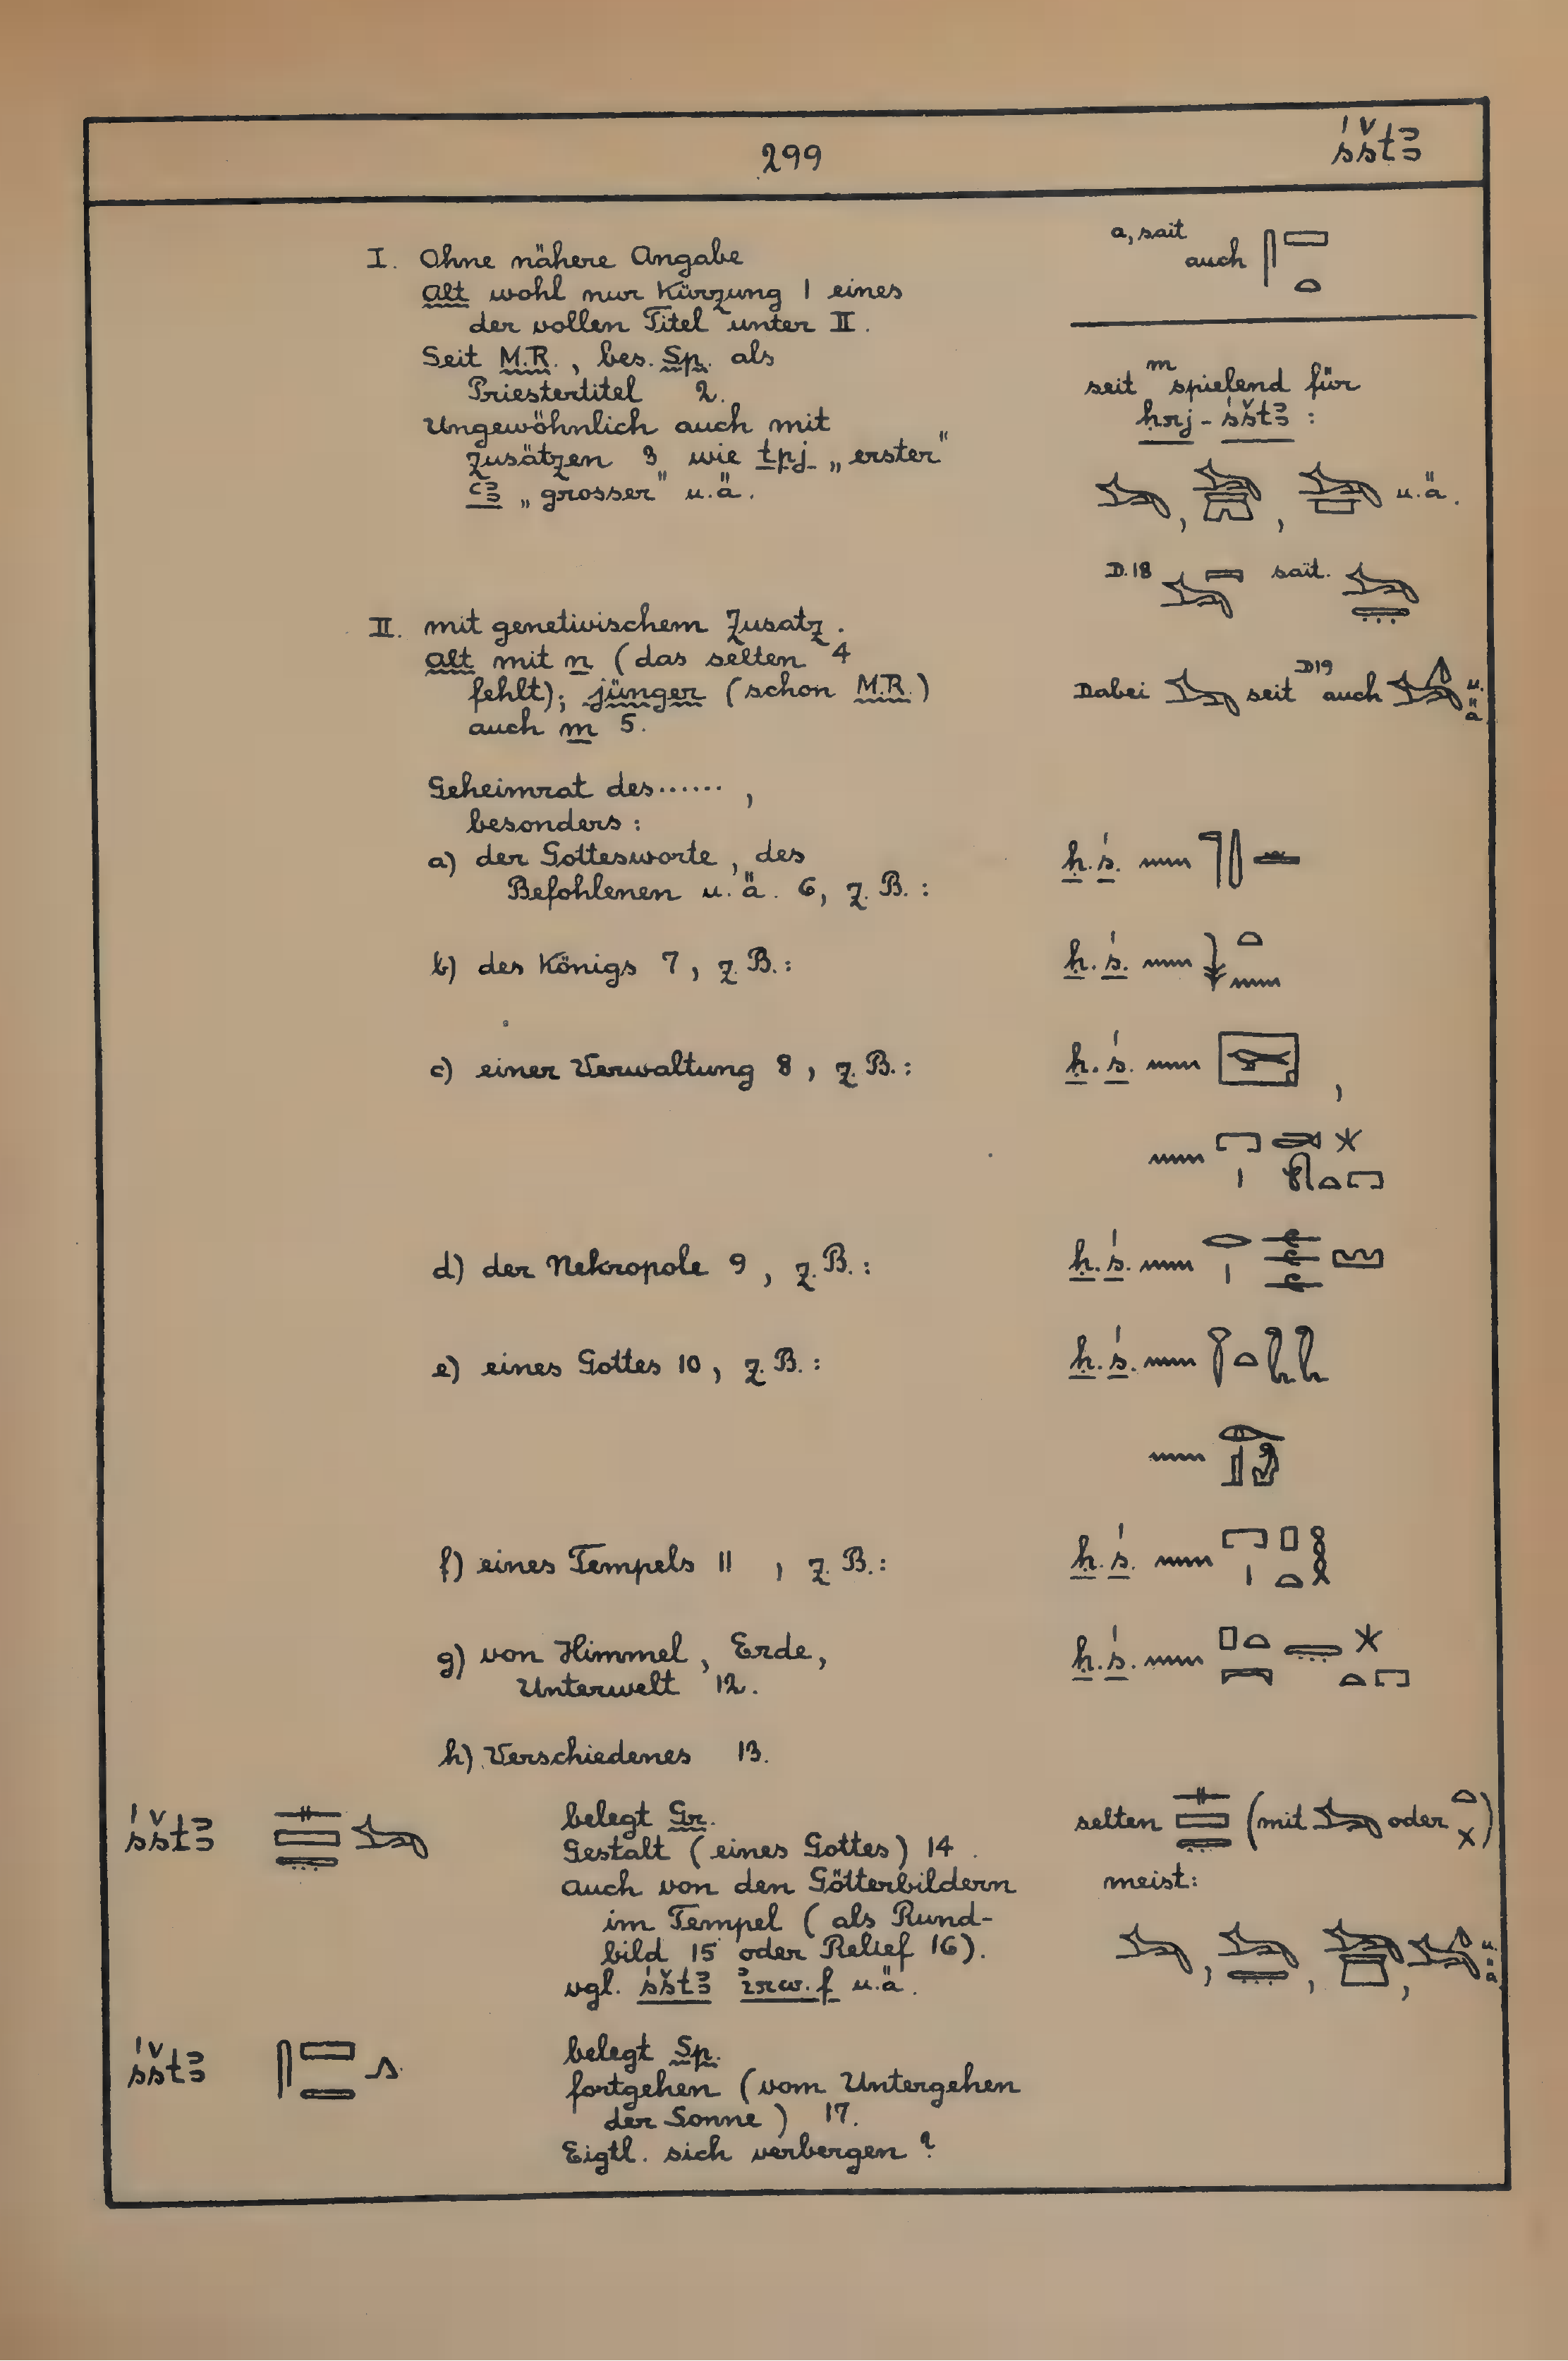 299
śštꜣ
I. Ohne nähere Angabe
Alt wohl nur Kürzung 1 eines
der vollen Titel unter II.
Seit M.R., bes. Sp. als
Priestertitel 2.
Ungewöhnlich auch mit
Zusätzen 3 wie tpj „erster"
ꜥꜣ „grosser" u.ä.
a, sait
auch
seit m spielend für
ḥrj-śštꜣ :
, , u.ä.
D.18 sait.
II. mit genetivischem Zusatz.
Alt mit n (das selten 4
fehlt); jünger (schon M.R.)
auch m 5.
Dabei seit D19 auch u.ä
Geheimrat des ...... ,
besonders :
a) der Gottesworte, des
Befohlenen u.ä. 6, z.B.:
ḥ.ś.
b) des Königs 7, z.B.:
ḥ.ś.
c) einer Verwaltung 8, z.B.:
ḥ.ś. ,
d) der Nekropole 9, z.B.:
ḥ.ś.
e) eines Gottes 10, z.B.:
ḥ.ś.
f) eines Tempels 11, z.B.:
ḥ.ś.
g) von Himmel, Erde,
Unterwelt 12.
ḥ.ś.
h) Verschiedenes 13.
śštꜣ
belegt Gr.
Gestalt (eines Gottes) 14.
auch von den Götterbildern
im Tempel (als Rund-
bild 15 oder Relief 16).
vgl. śštꜣ irw.f u.ä.
selten (mit oder )
meist:
, , , u.ä
śštꜣ
belegt Sp.
fortgehen (vom Untergehen
der Sonne) 17.
Eigtl. sich verbergen ?